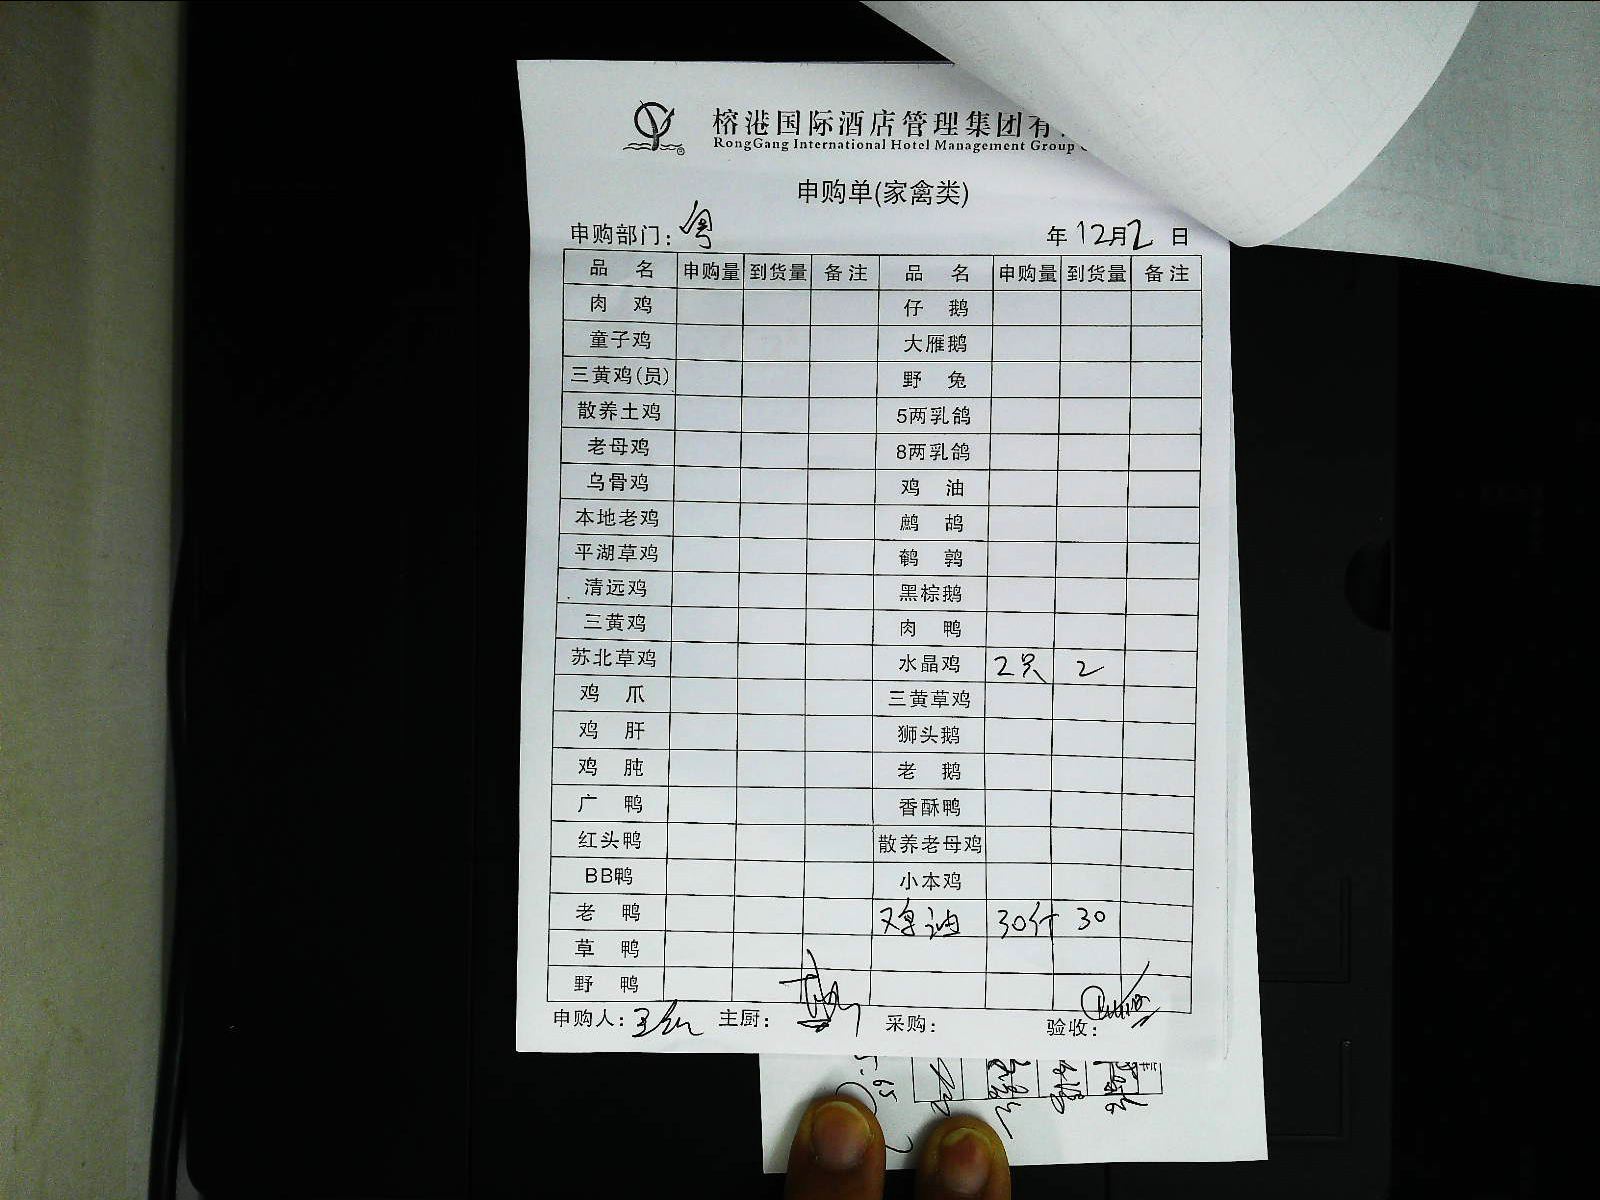 榕港国际酒店管理集团有
RongGang International Hotel Management Group
申购单(家禽类)
申购部门：粤 年12月2日
品名 申购量 到货量 备注 品名 申购量 到货量 备注
肉鸡 仔鹅
童子鸡 大雁鹅
三黄鸡(员) 野兔
散养土鸡 5两乳鸽
老母鸡 8两乳鸽
乌骨鸡 鸡油
本地老鸡 鹧鸪
平湖草鸡 鹌鹑
清远鸡 黑棕鹅
三黄鸡 肉鸭
苏北草鸡 水晶鸡 2只 2
鸡爪 三黄草鸡
鸡肝 狮头鹅
鸡肫 老鹅
广鸭 香酥鸭
红头鸭 散养老母鸡
BB鸭 小本鸡
老鸭 鸡油 30斤 30
草鸭
野鸭
申购人： 主厨： 采购： 验收：